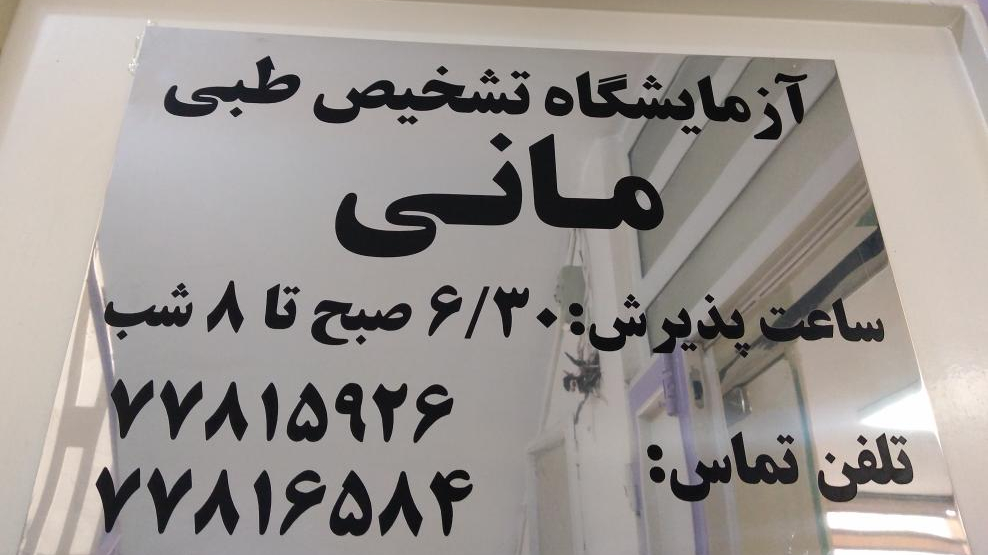 آزمایشگاه تشخیص طبی
مانی
ساعت پذیرش: ۶/۳۰ صبح تا ۸ شب
۷۷۸۱۵۹۲۶
تلفن تماس:
۷۷۸۱۶۵۸۴